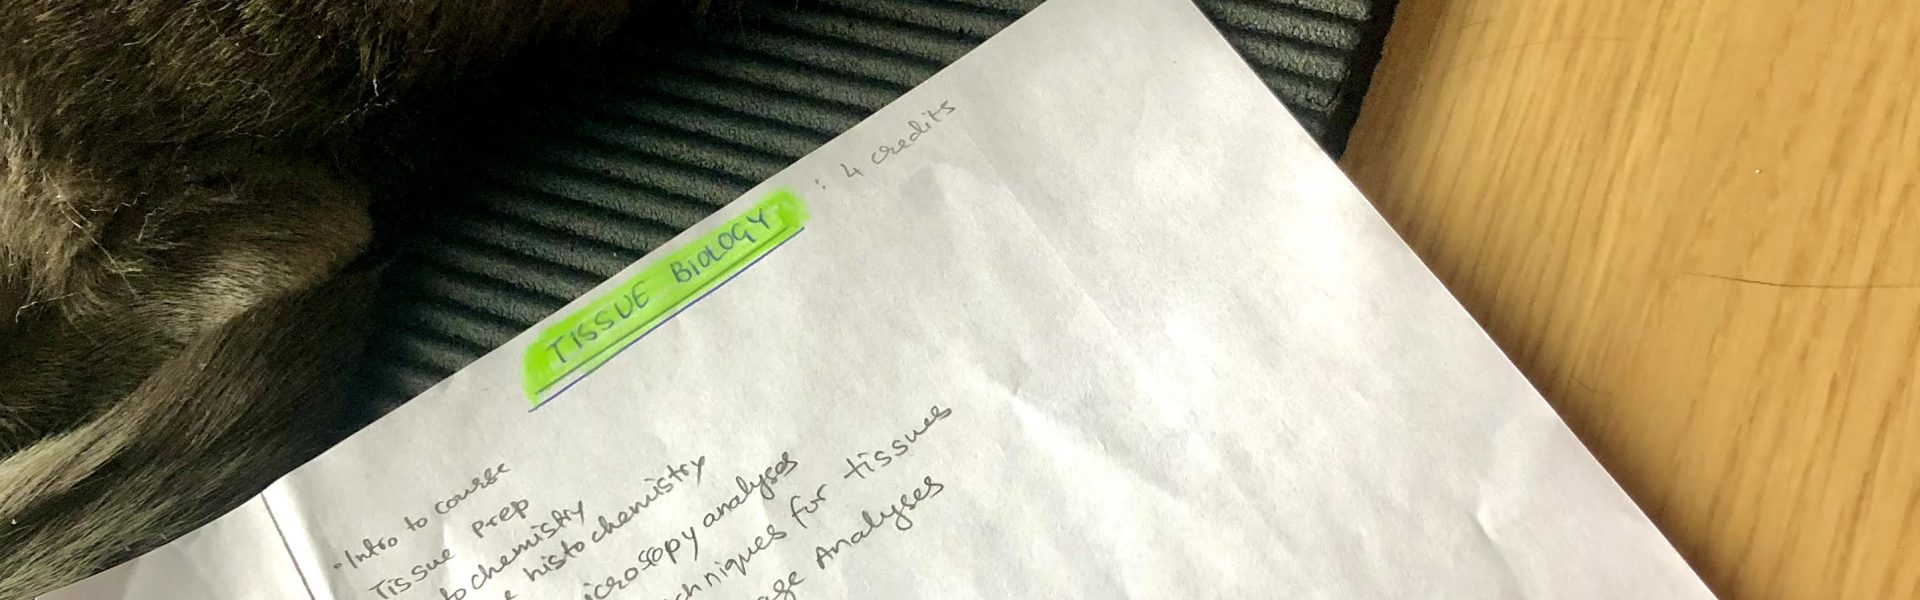 TISSUE BIOLOGY : 4 credits
• Intro to course
Tissue prep
tochemistry
histochemistry
icroscopy analyses
chniques for tissues
age Analyses